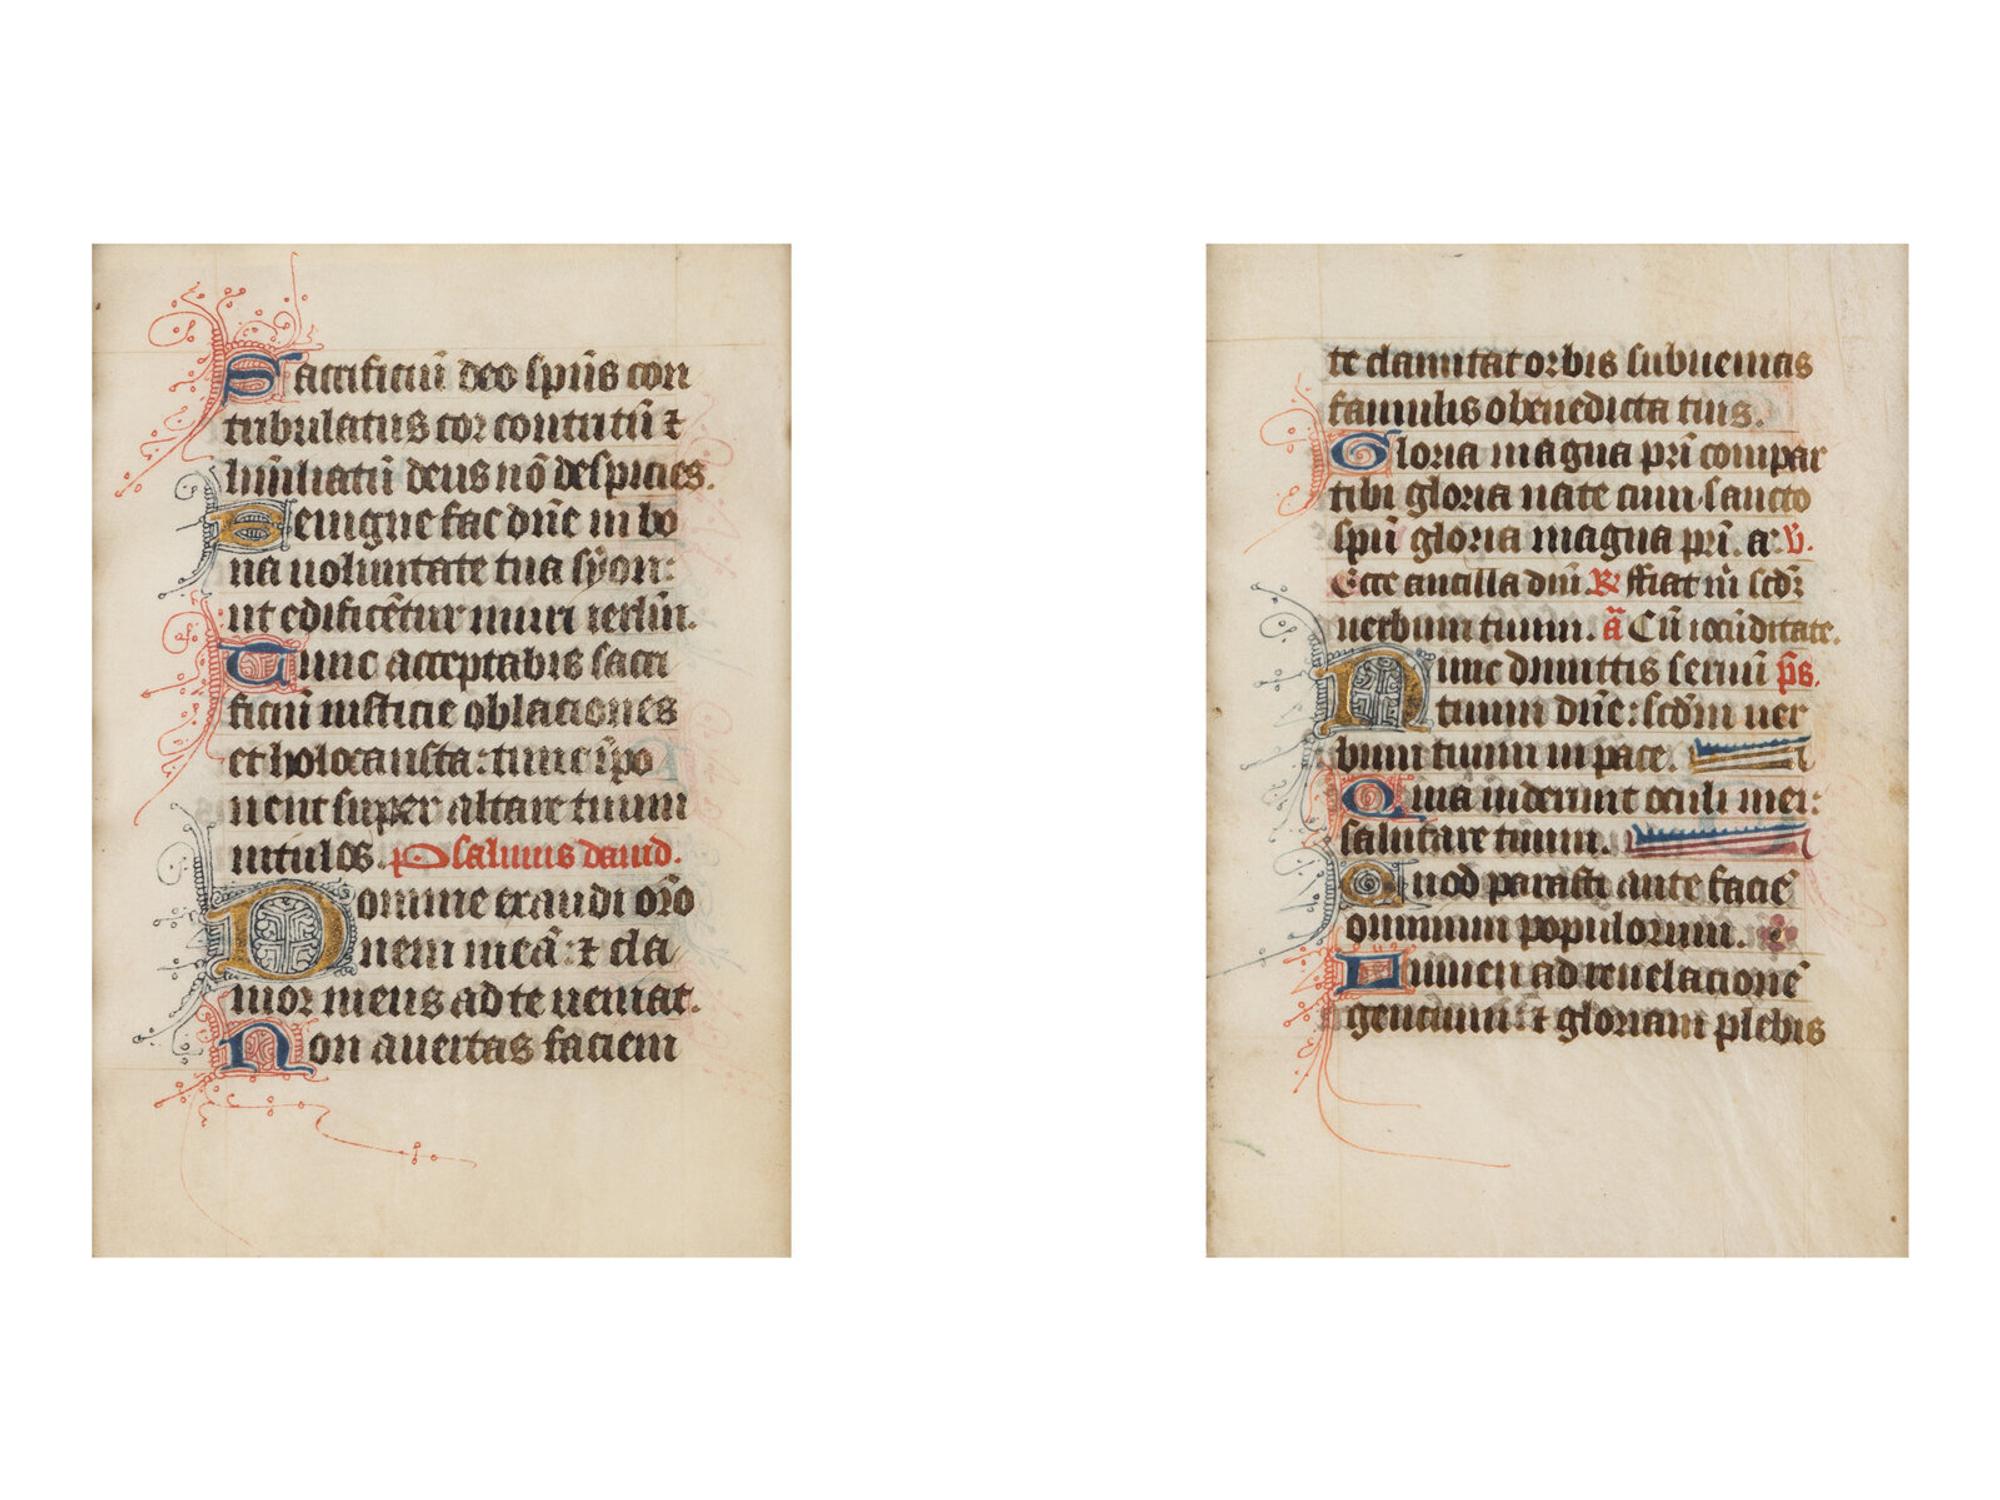 Sacrificiū deo spūs con
tribulatus cor contritū ⁊
humiliatū deus nō despicies.
Benigne fac dūe in bo
na uoluntate tua syon:
ut edificētur muri ierl̄m.
Tunc acceptabis sacri
ficiū iusticie oblaciones
et holocausta: tunc īpo
nent super altare tuum
uitulos. Psalmus dauid.
Domine exaudi orō
nem meā: ⁊ cla
mor meus ad te ueniat.
Non auertas faciem
te clamitat orbis subuenias
famulis o benedicta tuis.
Gloria magna pr̄i compar
tibi gloria nate cum sancto
spū gloria magna pr̄i. a: v̄.
Ecce ancilla dn̄i. R̄ ffiat m̄ scd̄ꝫ
uerbum tuum. ā Cū iocūditate.
Nunc dimittis seruū ps.
tuum dn̄e: scd̄m uer
bum tuum in pace.
Quia uiderunt oculi mei:
salutare tuum.
Quod parasti ante faciē
omnium populorum.
Lumen ad reuelacionē
gencium: ⁊ gloriam plebis